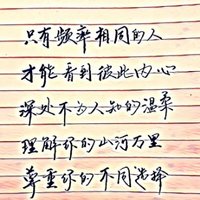 只有频率相同的人
才能看到彼此内心
深处不为人知的温柔
理解你的山河万里
尊重你的不同选择